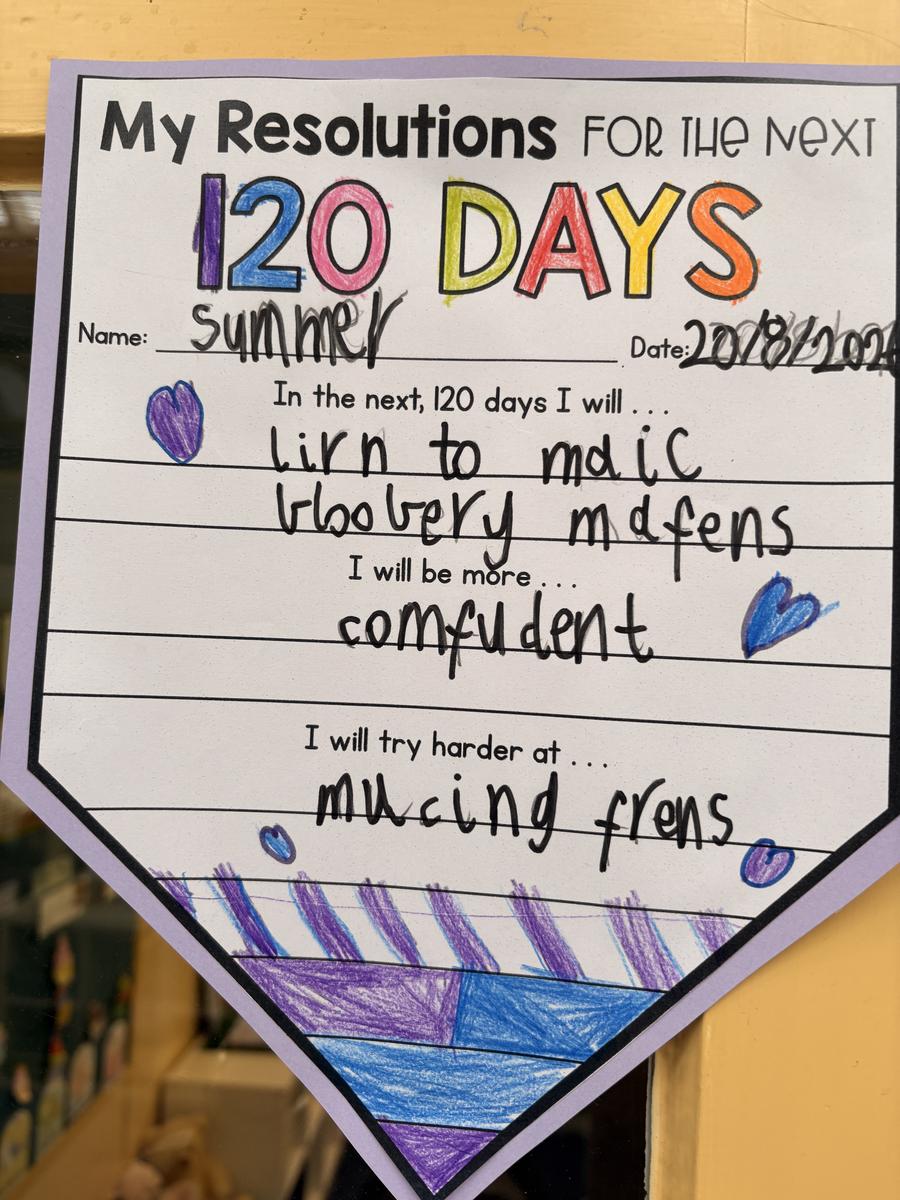 My Resolutions FOR THE NEXT
120 DAYS
Name: summer Date: 20/8/2026
In the next, 120 days I will ...
lirn to maic
bloobery mafens
I will be more ...
comfudent
I will try harder at ...
mucing frens